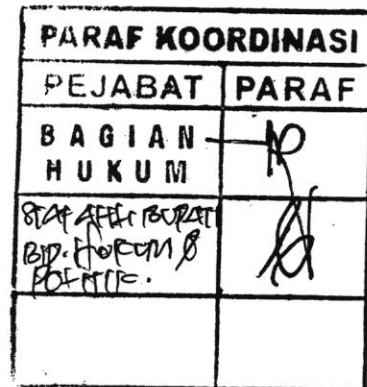 PARAF KOORDINASI
PEJABAT PARAF
BAGIAN
HUKUM
STAF AHLI BUPATI
BID. HUKUM &
POLITIK.